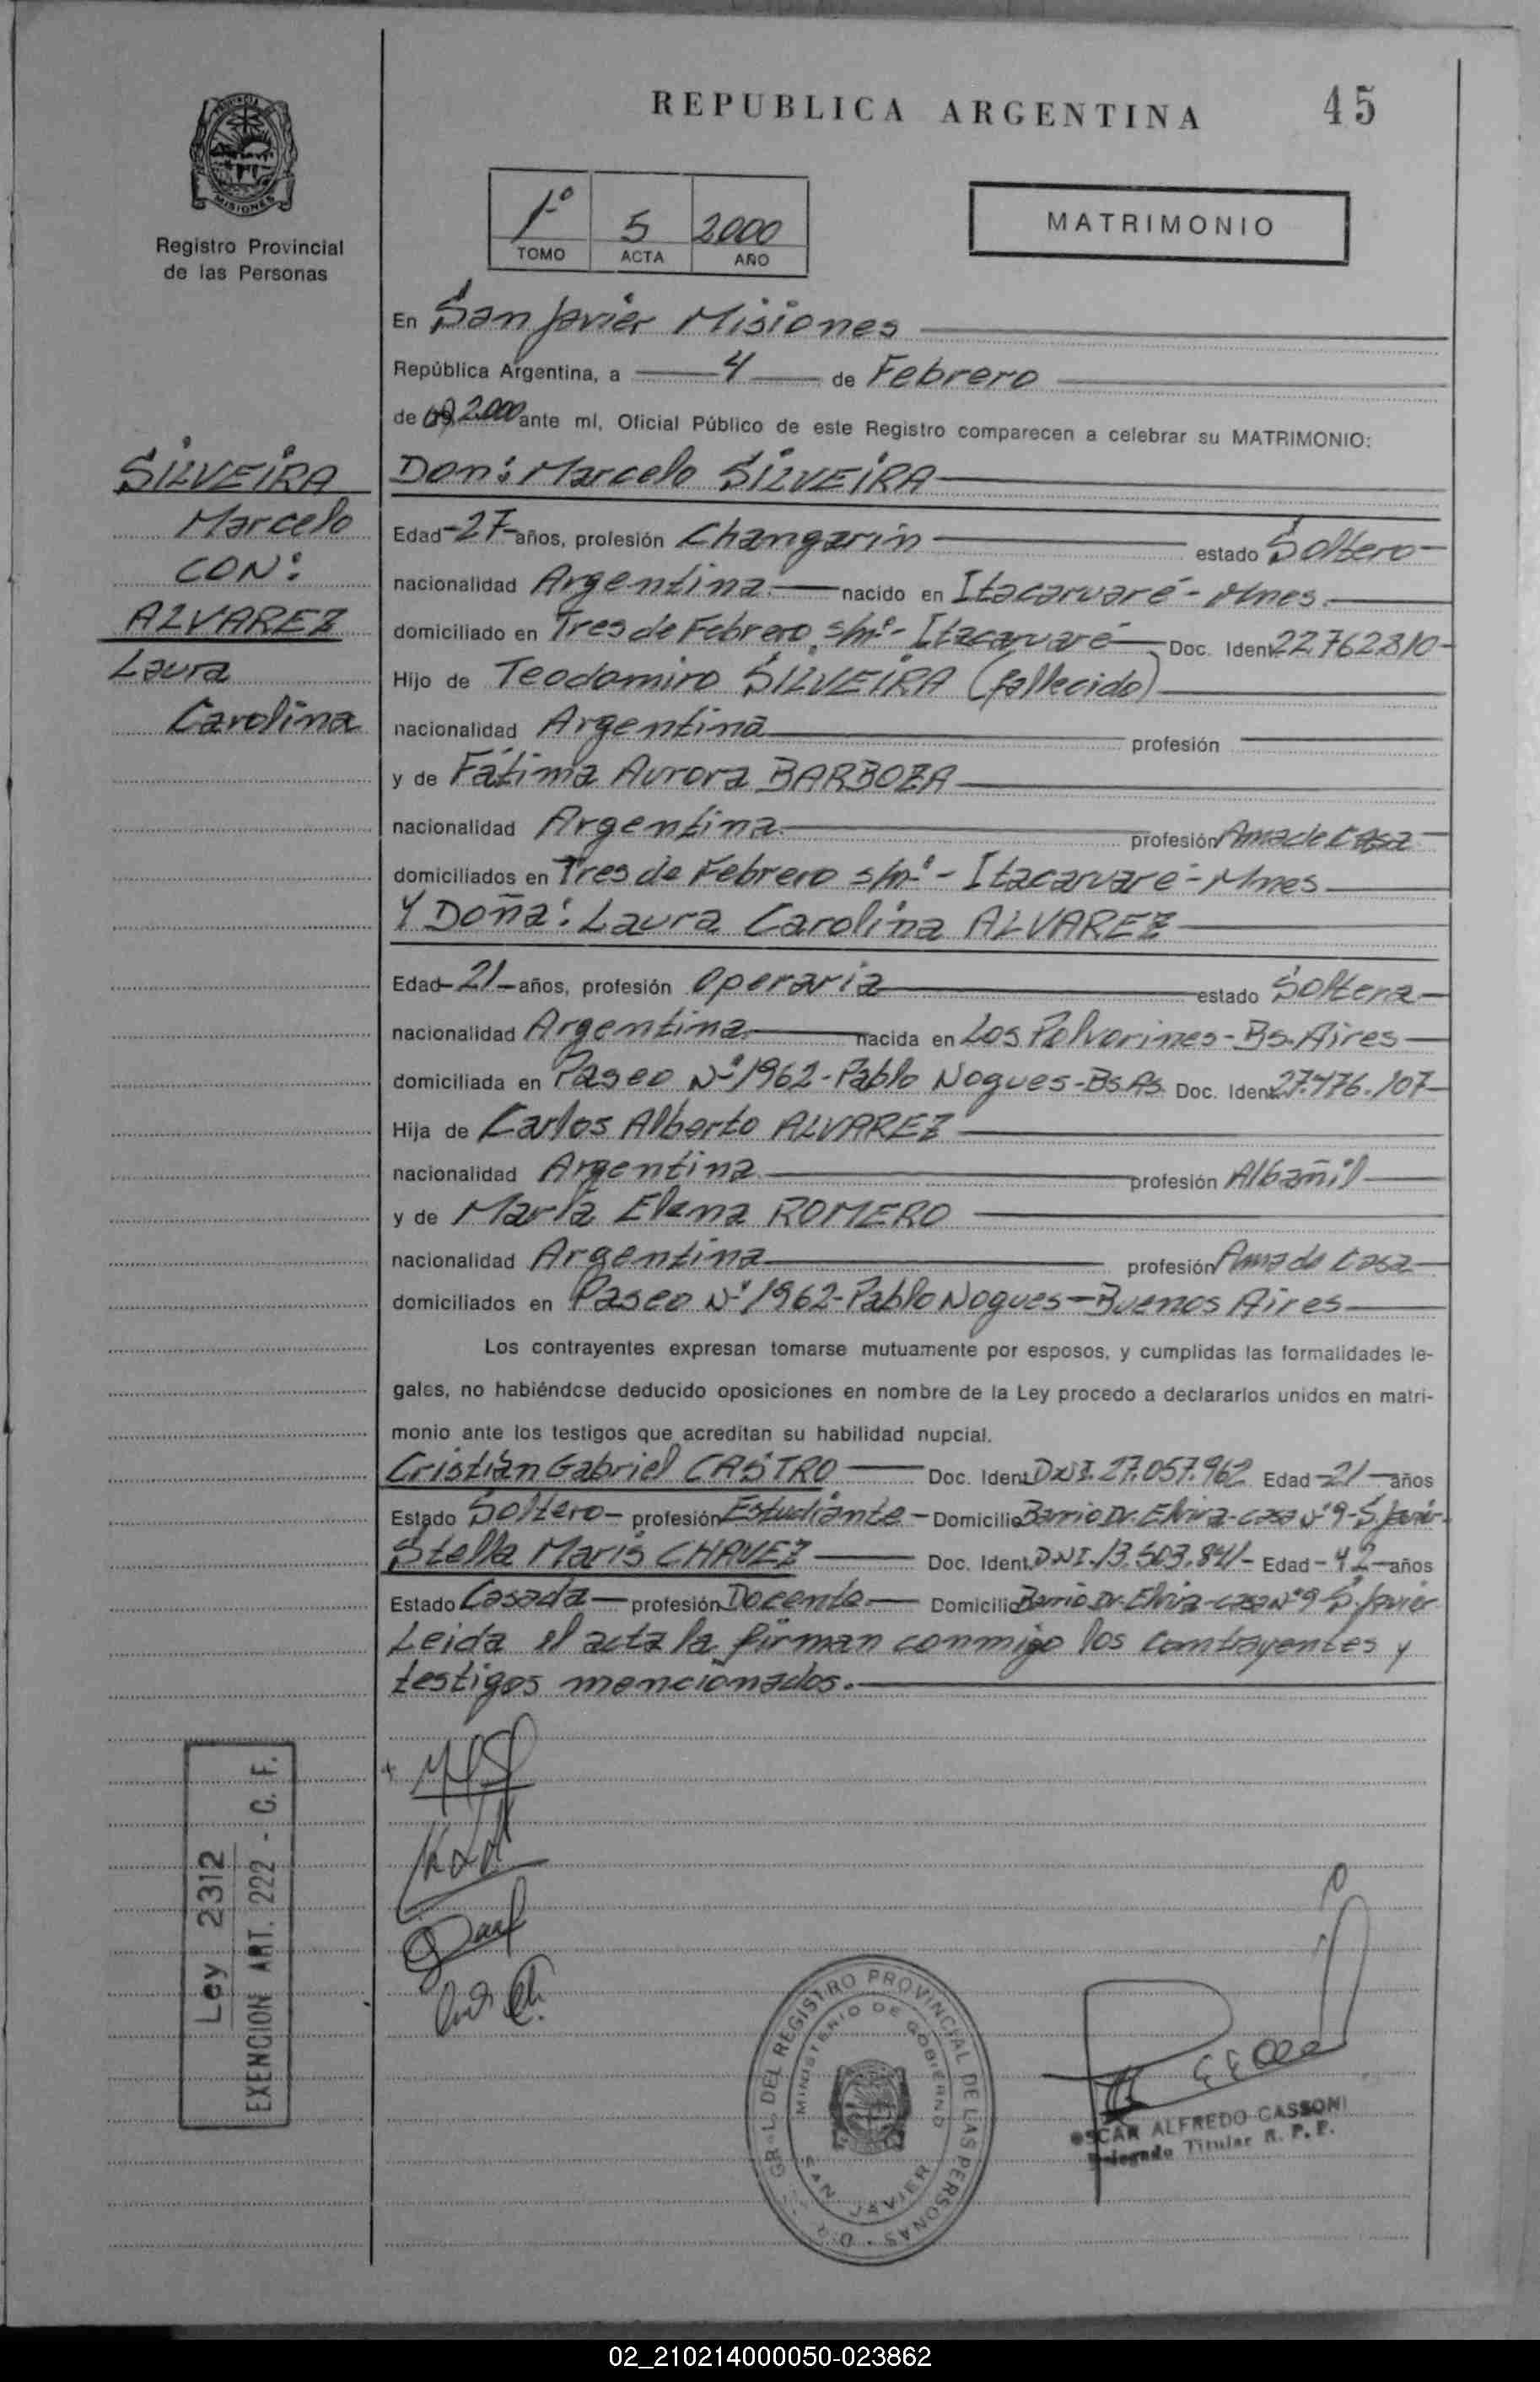 REPUBLICA ARGENTINA
45
PROVINCIA DE
MISIONES
Registro Provincial
de las Personas
1º 5 2000
TOMO ACTA AÑO
MATRIMONIO
En San Javier Misiones
República Argentina, a 4 de Febrero
de 2.000 ante mí, Oficial Público de este Registro comparecen a celebrar su MATRIMONIO:
SILVEIRA
Marcelo
CON:
ALVAREZ
Laura
Carolina
Don: Marcelo SILVEIRA
Edad -27- años, profesión Changarin estado Soltero
nacionalidad Argentina. nacido en Itacaruaré - Mnes.
domiciliado en Tres de Febrero s/nº - Itacaruaré Doc. Ident 22.762.810-
Hijo de Teodomiro SILVEIRA (fallecido)
nacionalidad Argentina profesión
y de Fátima Aurora BARBOZA
nacionalidad Argentina. profesión Ama de Casa
domiciliados en Tres de Febrero s/nº - Itacaruaré - Mnes
Y Doña: Laura Carolina ALVAREZ
Edad -21- años, profesión Operaria estado Soltera
nacionalidad Argentina. nacida en Los Polvorines - Bs. Aires
domiciliada en Paseo Nº 1962 - Pablo Nogues - Bs. As. Doc. Ident 27.476.107-
Hija de Carlos Alberto ALVAREZ
nacionalidad Argentina profesión Albañil
y de María Elena ROMERO
nacionalidad Argentina profesión Ama de Casa
domiciliados en Paseo Nº 1962 - Pablo Nogues - Buenos Aires
Los contrayentes expresan tomarse mutuamente por esposos, y cumplidas las formalidades le-
gales, no habiéndose deducido oposiciones en nombre de la Ley procedo a declararlos unidos en matri-
monio ante los testigos que acreditan su habilidad nupcial.
Cristian Gabriel CASTRO Doc. Ident. DNI. 27.057.962 Edad -21- años
Estado Soltero - profesión Estudiante - Domicilio Barrio Dr. Elvira - casa Nº 9 - S. Javier
Stella Maris CHAVEZ Doc. Ident. DNI. 13.503.841 - Edad - 42 - años
Estado Casada - profesión Docente Domicilio Barrio Dr. Elvira - casa Nº 9 - S. Javier
Leida el acta la firman conmigo los contrayentes y
testigos mencionados.
Ley 2312
EXENCION ART. 222 - C. F.
GRAL. DEL REGISTRO PROVINCIAL DE LAS PERSONAS
MINISTERIO DE GOBIERNO
SAN JAVIER
OSCAR ALFREDO CASSONI
Delegado Titular R. P. P.
02_210214000050-023862